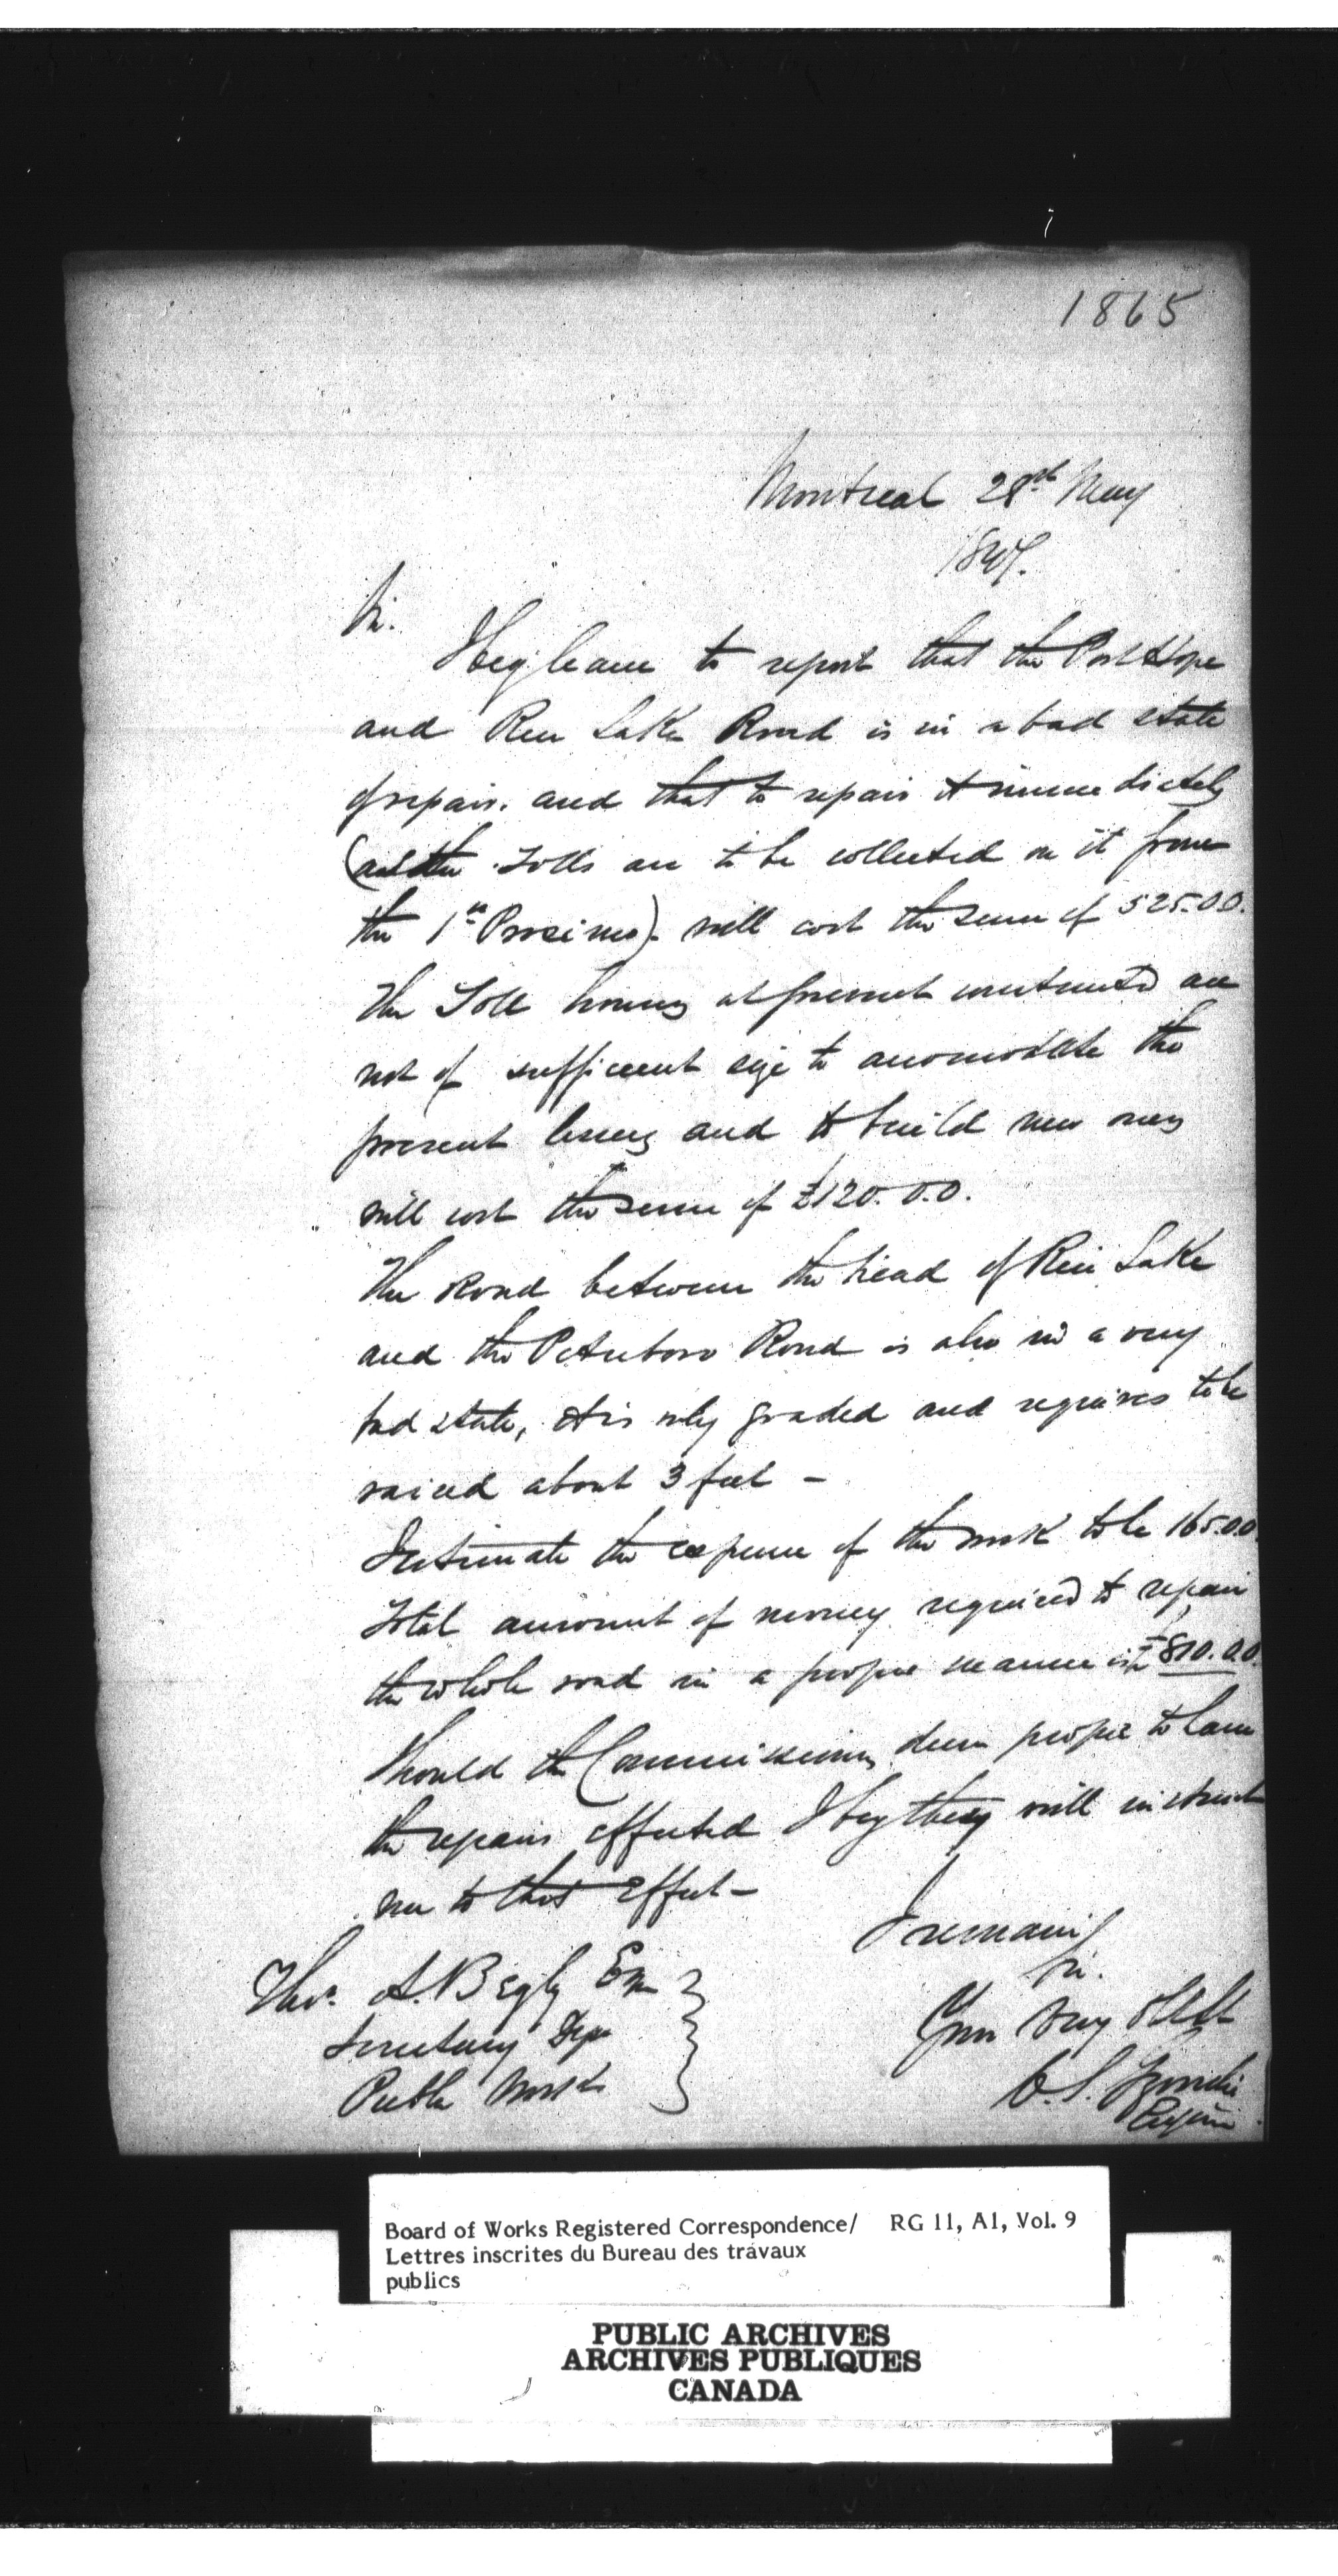 1865
Montreal 28th May
1847.
Sir.
I beg leave to report that the Port Hope
and Rice Lake Road is in a bad state
of repair. and that to repair it immediately
(as the Tolls are to be collected on it from
the 1st Proximo) will cost the sum of 525.0.0.
The Toll houses at present constructed are
not of sufficient size to accomodate the
present lessees and to build new ones
will cost the sum of £120.0.0.
The Road between the head of Rice Lake
and the Peterboro Road is also in a very
bad state, it is only graded and requires to be
raised about 3 feet -
I estimate the expense of the work to be 165.0.0
Total amount of money required to repair
the whole road in a proper manner is £810.0.0.
Should the Commissioners deem proper to have
the repairs effected I beg they will instruct
me to that effect -
I remain
Sir.
Your Very Obt
C. S. Gzowski
Engineer
Thos. A. Begly Esq
Secretary Dept
Public Works
Board of Works Registered Correspondence/ RG 11, A1, Vol. 9
Lettres inscrites du Bureau des travaux
publics
PUBLIC ARCHIVES
ARCHIVES PUBLIQUES
CANADA